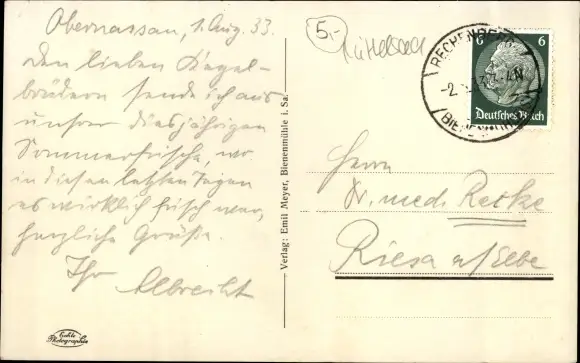 Obernassau, 1. Aug. 33.
Den lieben Kegel-
brüdern sende ich aus
unsrer diesjährigen
Sommerfrische, wo
in diesen letzten Tagen
es wirklich frisch war,
herzliche Grüße.
Ihr Albrecht
Echte
Photographie
Verlag: Emil Meyer, Bienenmühle i. Sa.
5,-
RECHENBERG-
BIENENMÜHLE
6 6
Deutsches Reich
Herrn
Dr. med. Retke
Riesa a/Elbe